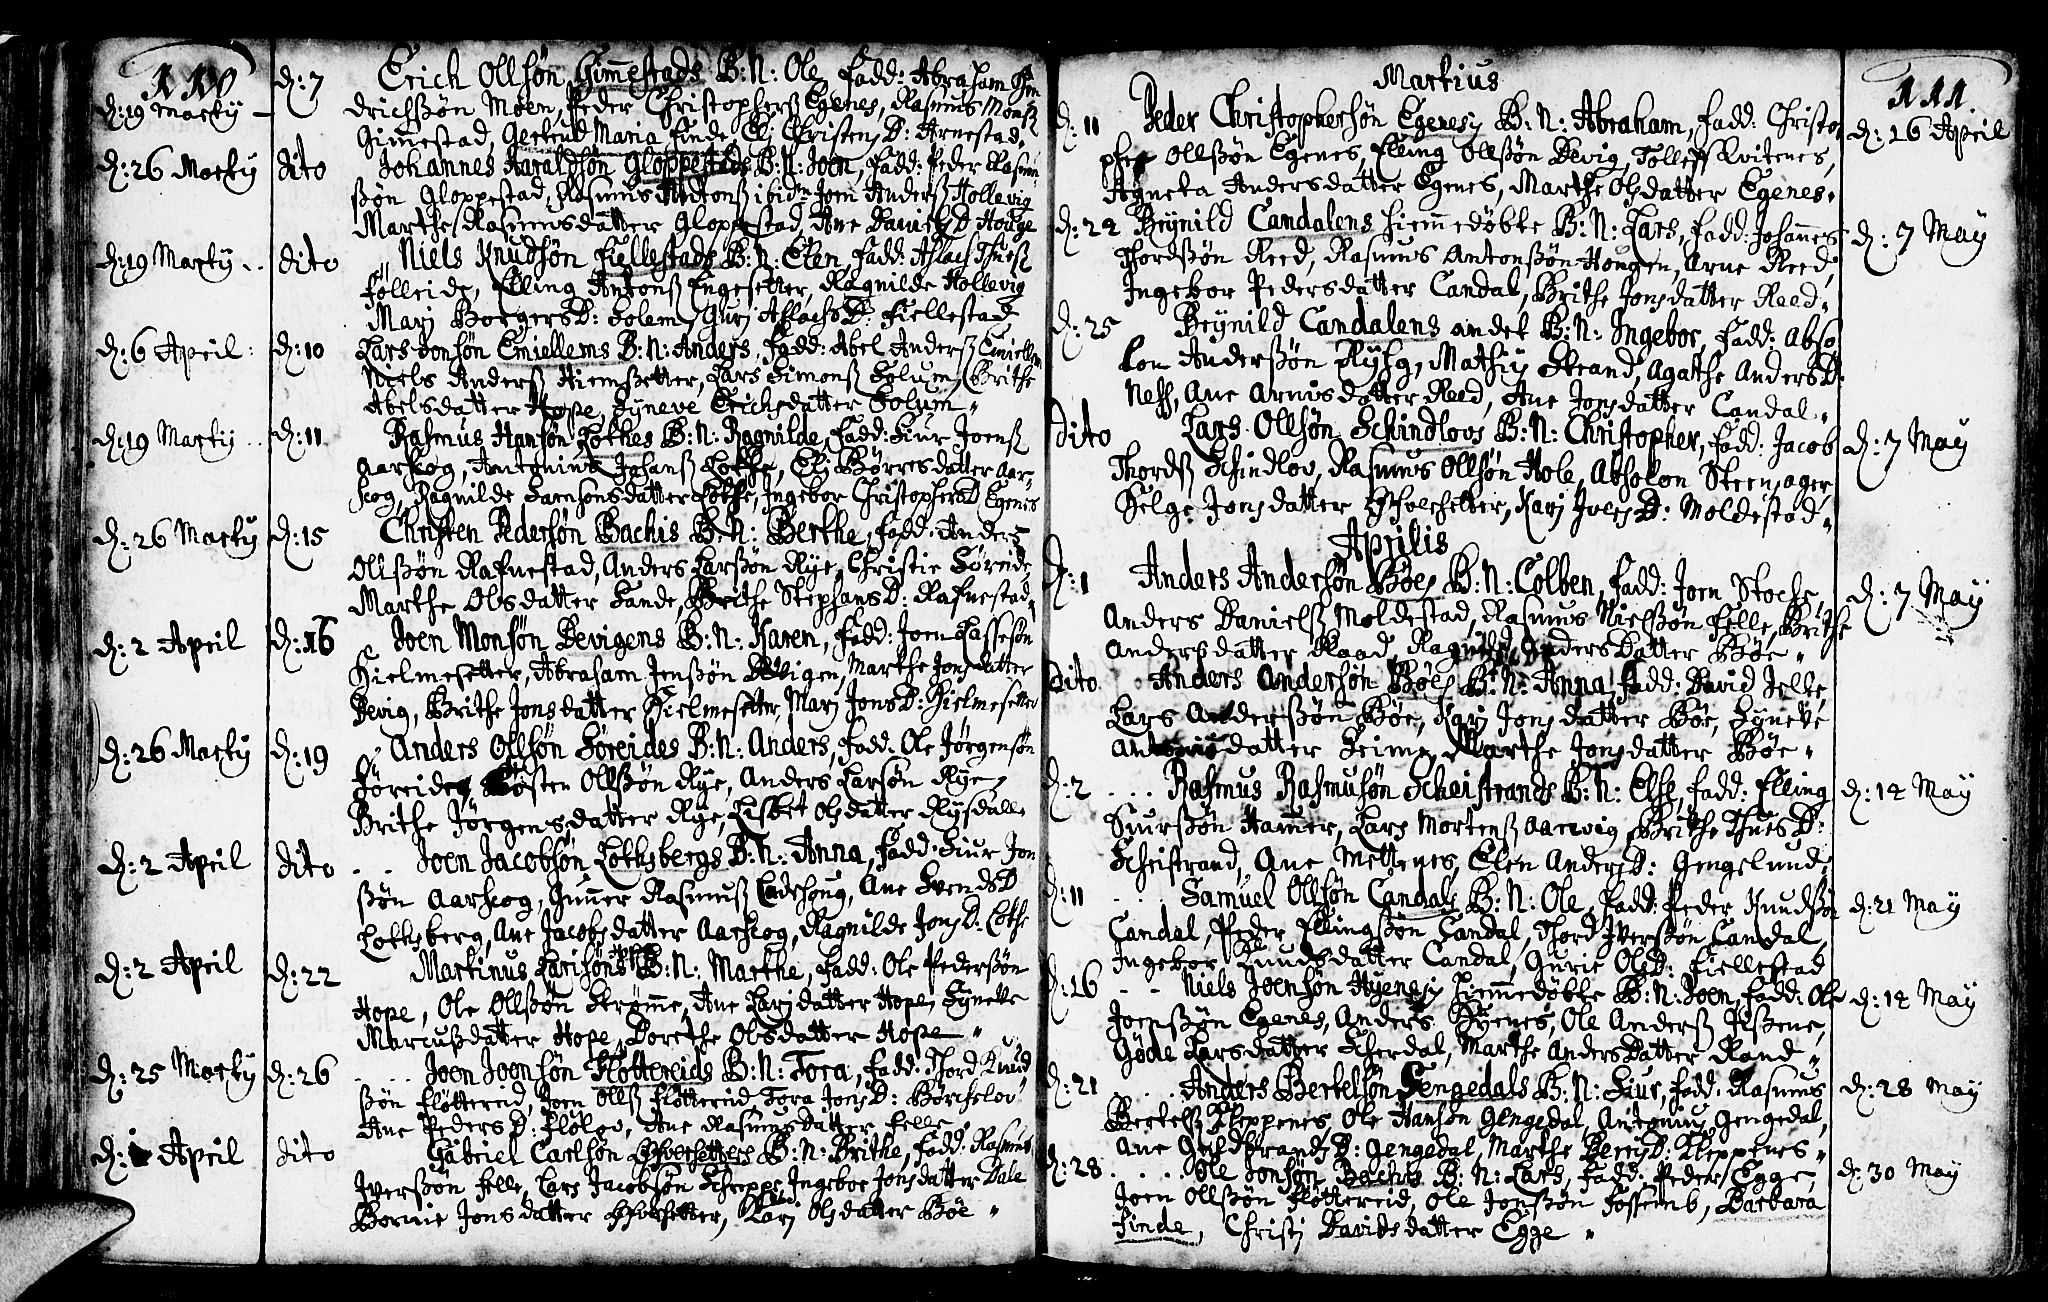 110
d: 19 Marty — d: 7 Erich Ollsøn Gimestads B: N: Ole, Fadd: Abraham Hen
drichssøn Moen, Peder Christophers Egenes, Rasmus Mons
Gimestad, Gertrud Maria Finde, Eli Christens D: Arnestad.
d: 26 Marty dito Johannes Haraldsøn Gloppestads B: N: Joen, Fadd: Peder Rasmu
ssøn Gloppestad, Rasmus Antons ibidm Joen Anders Hollevig
Marthe Rasmusdatter Gloppestad, Ane Daniels D Houge
d: 19 Marty .. dito Niels Knudsøn Fiellestads B: N: Elen Fadd: Aslach Thues
Følleide, Elling Antons Engesetter, Ragnilde Hollevig
Mari Borgers D: Solem, Guri Aslachs D: Fiellestad
d: 6 April: d: 10 Lars Jonsøn Emiellems B: N: Anders, Fadd: Abel Anders Emiellem
Niels Anders Hiemssetter, Lars Simons Solum, Brithe
Abelsdatter Hope, Syneve Erichsdatter Solum ,,
d: 19 Marty .. d: 11 Rasmus Hansøn Lothes B: N: Ragnilde, Fadd: Siur Joens
Aarskog, Antonius Johans Lothe, Eli Børresdatter Aar-
skog, Ragnilde Samsonsdatter Lothe, Ingebor Christophers D Egenes
d: 26 Marty d: 15 Christen Pedersøn Bachis B: N: Berthe, Fadd: Anders
Ollssøn Rafnestad, Anders Larssøn Rye, Christie Søreide
Marthe Olsdatter Sande, Brithe Stephans D: Rafnestad,
d: 2 April d: 16 Joen Monsøn Devigens B: N: Karen, Fadd: Joen Lassesøn
Hielmesetter, Abraham Jenssøn Devigen, Marthe Jonsdatter
Devig, Brithe Jonsdatter Hielmesetter, Mari Jons D: Hielmesetter
d: 26 Marty d: 19 Anders Ollsøn Søreides B: N: Anders, Fadd: Ole Jørgensøn
Søreide, Tosten Ollssøn Rye, Anders Larsøn Rye,
Brithe Jørgensdatter Rye, Lisbet Olsdatter Rysdalle
d: 2 April dito ... Joen Jacobsøn Lothsbergs B: N: Anna, Fadd: Siur Jon
ssøn Aarskog, Gunner Rasmus Ladehoug, Ane Svends D
Lothsberg, Ane Jacobsdatter Aarskog, Ragnilde Jons D: Lothe
d: 2 April d: 22 Martinus Larisøns B: N: Marthe, Fadd: Ole Pederssøn
Hope, Ole Ollssøn Strømme, Ane Larsdatter Hope, Syneve
Marcusdatter Hope, Dorethe Olsdatter Hope ,,
d: 25 Marty d: 26 .... Joen Joensøn Flottereids B: N: Tora, Fadd: Thord Knud
ssøn Fløttereid, Joen Olls Fløttereid Tora Jons D: Børifslov
Ane Peders D: Flølov, Ane Rasmusdatter Felle ,
d: 1 April dito Gabriel Carlsøn Ehvesetters B: N: Brithe, Fadd: Rasmus
Iverssøn Felle, Lars Jacobsøn Schreppe, Ingebor Jonsdatter Dale
Bornie Jonsdatter Ehvesetter, Kari Olsdatter Bøe ,,
Martius
111.
d: 11 Peder Christophersøn Egenesis B: N: Abraham, Fadd: Christo d: 16 April
pher Ollssøn Egenes, Elling Ollssøn Devig, Tollef Qvitenes,
Agneta Andersdatter Egenes, Marthe Olsdatter Egenes.
d: 22 Brynild Candalens hiemmedøbte B: N: Lars, Fadd: Johannes d: 7 May
Thordssøn Reed, Rasmus Antonssøn Hougen, Arne Reed,
Ingebor Pedersdatter Candal, Brithe Jonsdatter Reed.
d: 25 Brynild Candalens andet B: N: Ingebor, Fadd: Abso
lon Anderssøn Rysg, Mathis Strand, Agathe Anders D:
Ness, Ane Arnisdatter Reed, Ane Jonsdatter Candal ,,
dito Lars Ollsøn Schindlovs B: N: Christopher, Fadd: Jacob d: 7 May
Thords Schindlov, Rasmus Ollsøn Hole, Absolon Steensager,
Helge Jonsdatter Ehvesetter, Kari Ivers D: Moldestad ,,
Aprilis
d: 1 Anders Andersøn Bøes B: N: Colben, Fadd: Joen Stoche, d: 7 May
Anders Daniels Moldestad, Rasmus Nielssøn Felle, Brithe
Andersdatter Raad, Ragnild Andersdatter Bøe ,,
dito Anders Andersøn Bøes B: N: Anna, Fadd: David Jelle,
Lars Anderssøn Bøe, Kari Jonsdatter Bøe, Syneve
Antonisdatter Seime, Marthe Jonsdatter Bøe ,,
d: 2 ... Rasmus Rasmusøn Scheistrands B: N: Else, Fadd: Elling d: 14 May
Siurssøn Hammer, Lars Mortens Aarevig, Brithe Thues D:
Scheistrand, Ane Mettenes, Elen Anders D: Gengelund.
d: 11 ... Samuel Ollsøn Candals B: N: Ole, Fadd: Peder Knudsøn d: 21 May
Candal, Peder Ellingssøn Candal, Thord Iverssøn Candal,
Ingebor Knudsdatter Candal, Gurie Ols D: Fiellestad
d: 16 .. Niels Joensøn Hyenes hiemmedøbte B: N: Joen, Fadd: Ole d: 14 May
Joenssøn Egenes, Anders Hyenes, Ole Anders,
Gøde Larsdatter Scherdal, Marthe Andersdatter Rand ,,
d: 21 ... Anders Bertelsøn Gengedals B: N: Siur, Fadd: Rasmus d: 28 May
Bertels Kleppenes, Ole Hansøn Gengedal, Antonius Gengedal,
Ane Guldbrands D: Gengedal, Marthe Berris D: Kleppenes ,,
d: 28 .... Ole Jonsøn Bachis B: N: Lars, Fadd: Peder Egge, d: 30 May
Joen Ollssøn Fløttereid, Ole Jonssøn Fossemb, Barbara
Finde, Christi Davidsdatter Egge ,,